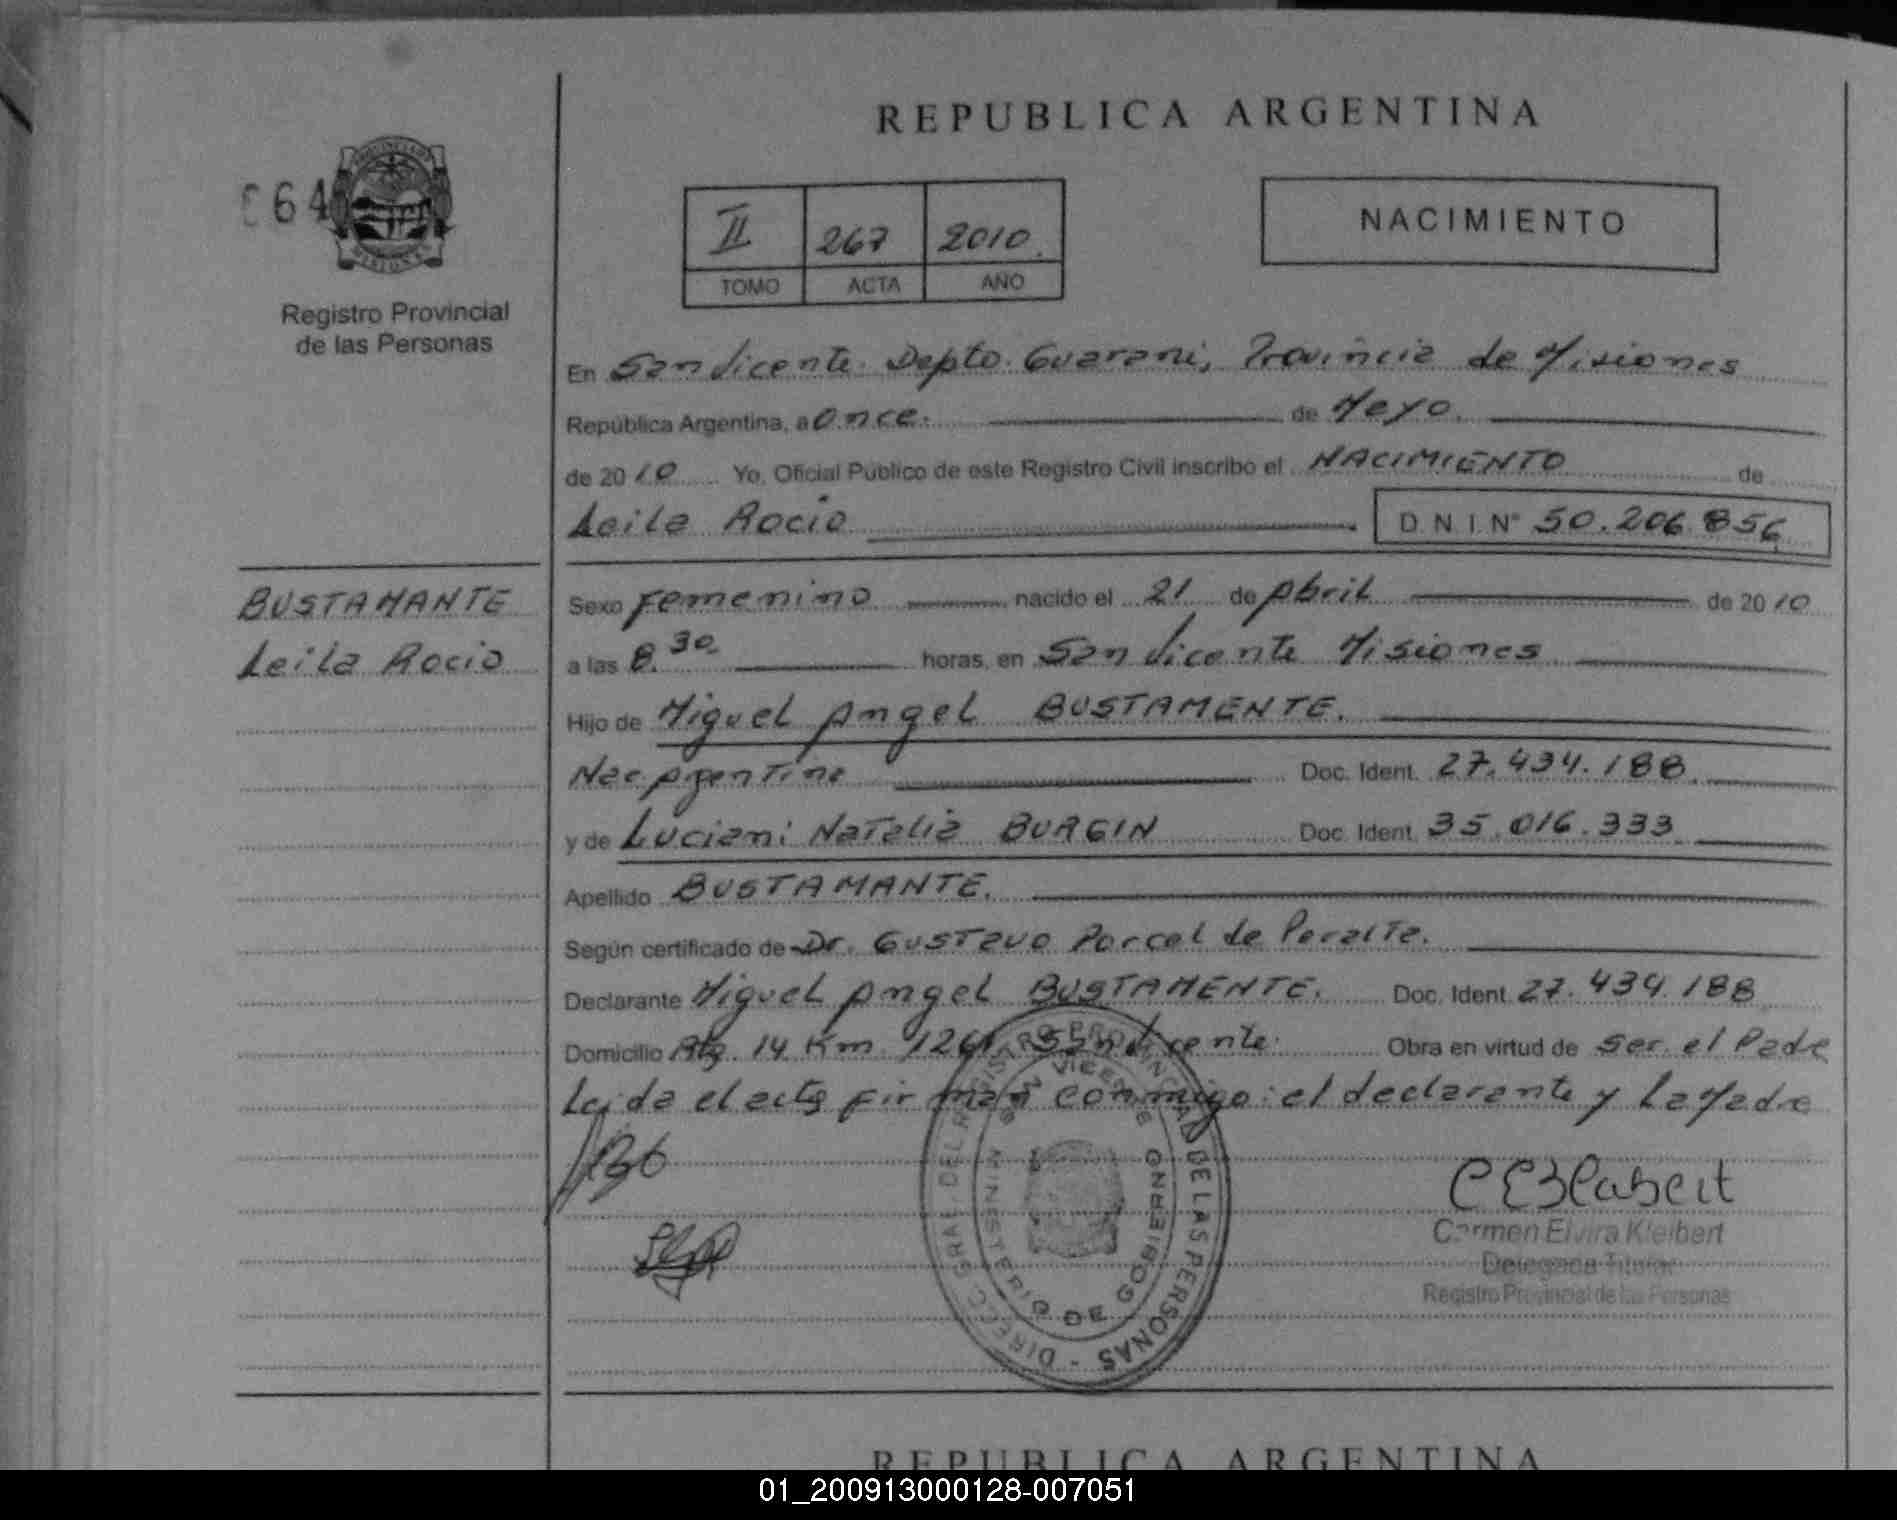 REPUBLICA ARGENTINA
064
Registro Provincial
de las Personas
II 267 2010.
TOMO ACTA AÑO
NACIMIENTO
En San Vicente. Depto. Guarani, Provincia de Misiones
República Argentina, a once. de Mayo.
de 2010 Yo, Oficial Público de este Registro Civil inscribo el NACIMIENTO de
Leila Rocio D.N.I.N° 50.206.856
BUSTAMANTE
Leila Rocio
Sexo Femenino nacido el 21 de Abril de 2010
a las 8.30 horas, en San Vicente Misiones
Hijo de Miguel Angel BUSTAMENTE.
Nac. Argentina Doc. Ident. 27.434.188
y de Luciani Natalia BURGIN Doc. Ident. 35.016.333
Apellido BUSTAMANTE.
Según certificado de Dr. Gustavo Porcel de Peralta.
Declarante Miguel Angel BUSTAMENTE. Doc. Ident. 27.434.188
Domicilio 14 Km San Vicente. Obra en virtud de Ser el Padre
Leida el acta firman conmigo: el declarante y La Madre
DIRECC. GRAL. DEL REGISTRO PROVINCIAL DE LAS PERSONAS -
SAN VICENTE
MINISTERIO DE GOBIERNO
Carmen Elvira Kleibert
Delegada Titular
Registro Provincial de las Personas
REPUBLICA ARGENTINA
01_200913000128-007051